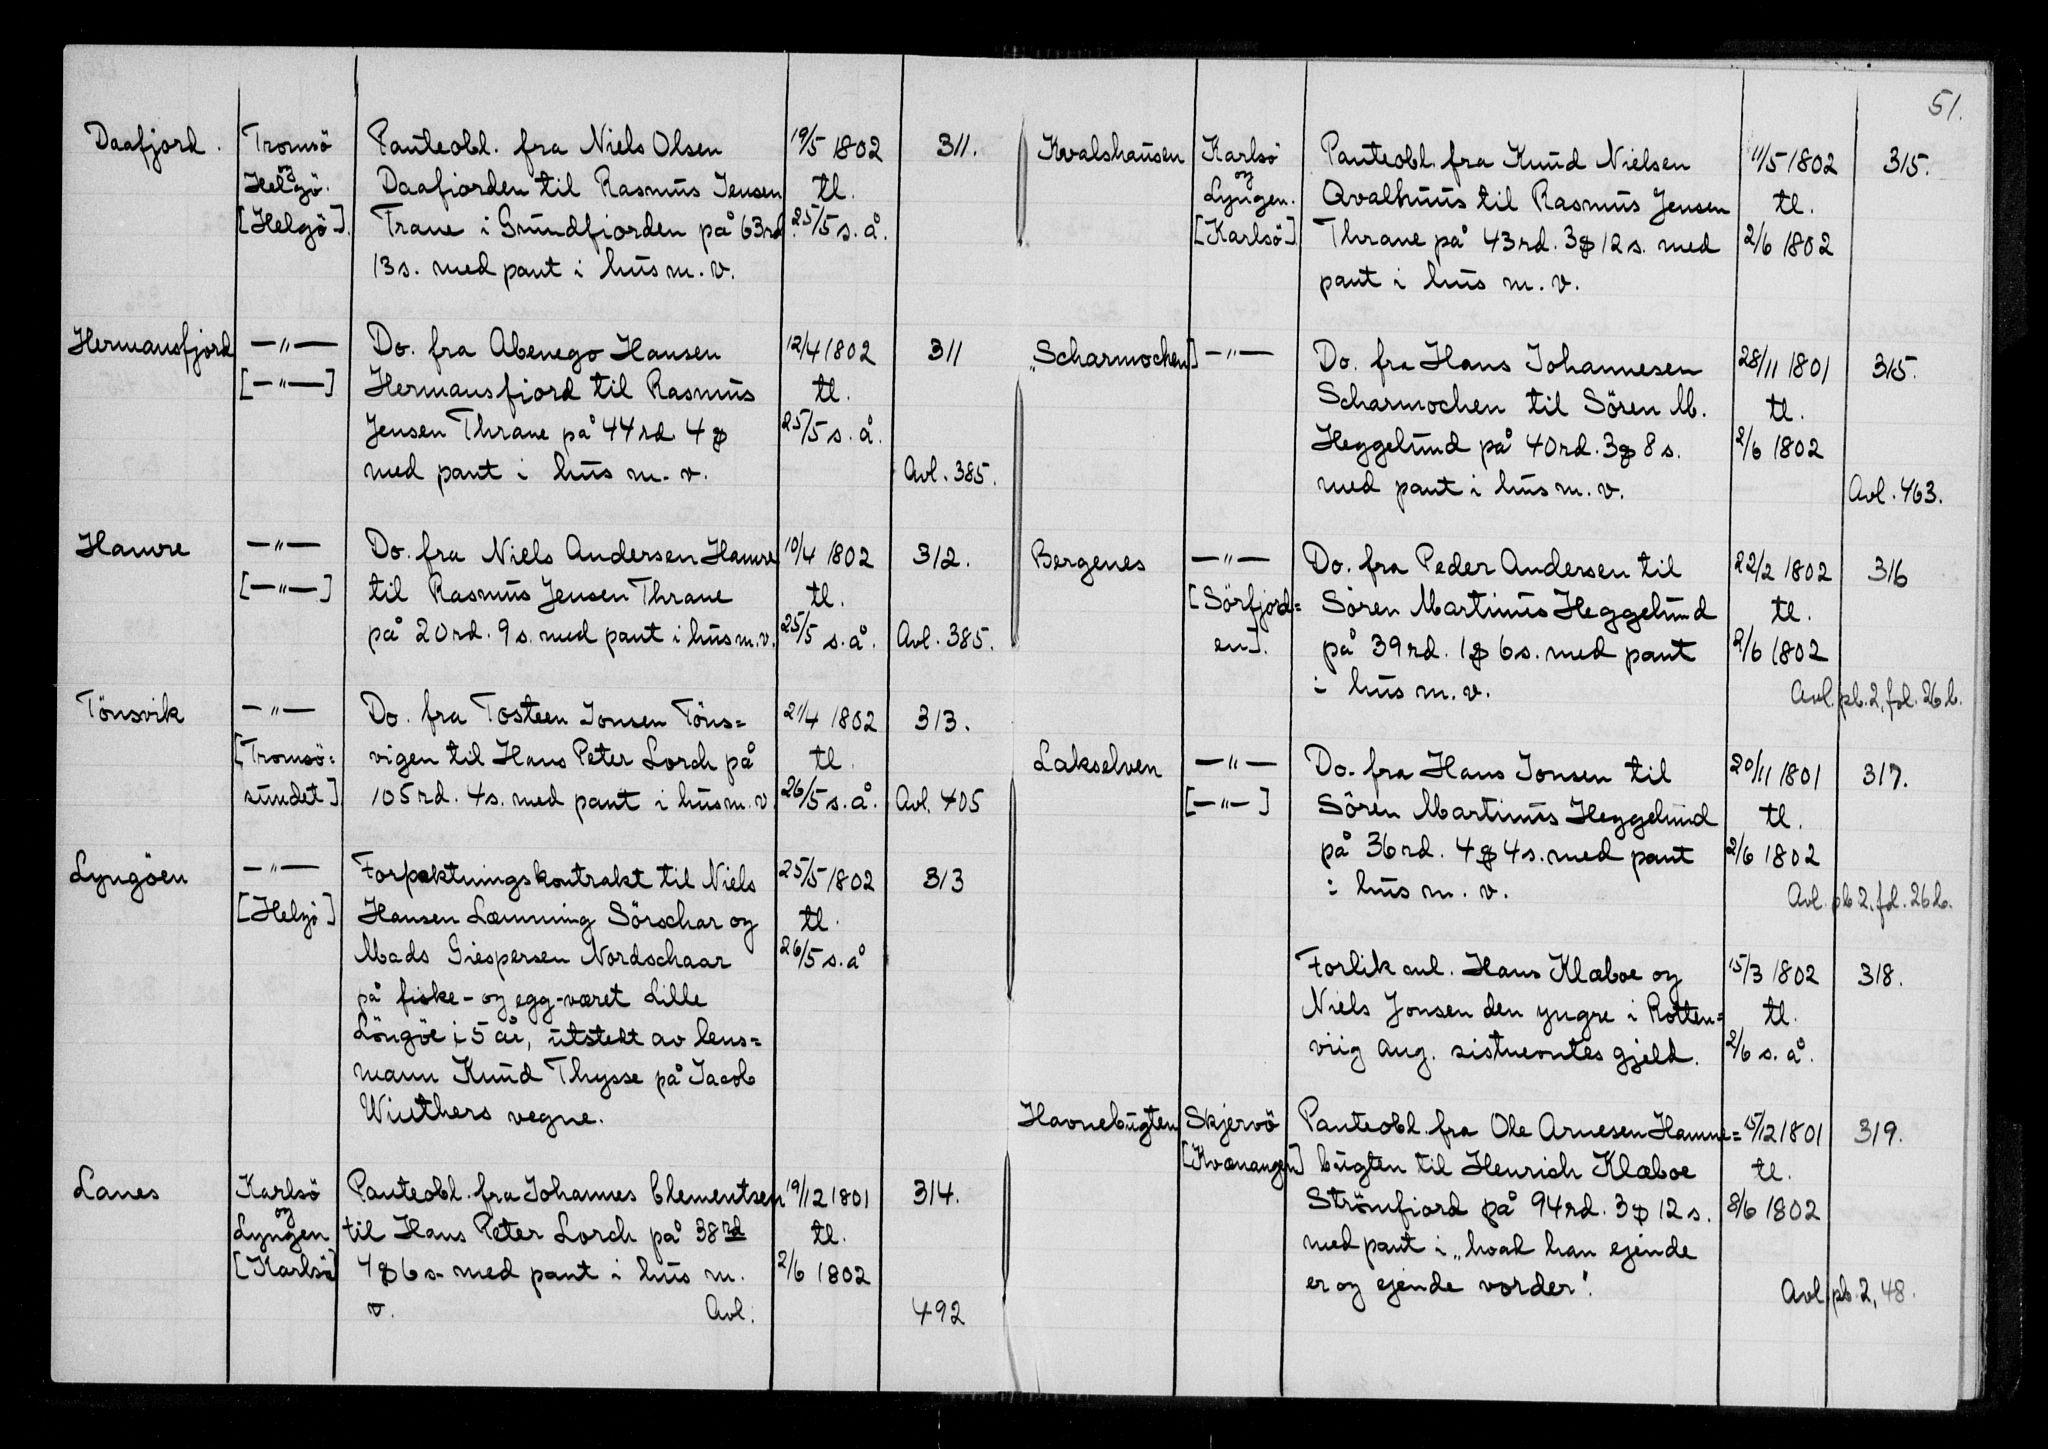 51.
Daafjord. Tromsö Panteobl. fra Niels Olsen 19/5 1802 311.
og
Helgö. Daafiorden til Rasmus Jensen tl.
[Helgö]. Trane i Grundfiorden på 63rd. 25/5 s. å.
13s. med pant i hus m. v.
Hermansfjord —"— Do. fra Abenego Hansen 12/4 1802 311
[—"—] Hermansfiord til Rasmus tl.
Jensen Thrane på 44rd 4 ꝥ 25/5 s. å.
med pant i hus m. v. Avl. 385.
Hamre —"— Do. fra Niels Andersen Hamre 10/4 1802 312.
[—"—] til Rasmus Jensen Thrane tl.
på 20rd. 9s. med pant i hus m. v. 25/5 s. å. Avl. 385.
Tönsvik —"— Do. fra Tosteen Jonsen Töns= 21/4 1802 313.
[Tromsö= vigen til Hans Peter Lorch på tl.
sundet]. 105rd. 4s. med pant i hus m. v. 26/5 s. å. Avl. 405
Lyngöen —"— Forpaktningskontrakt til Niels 25/5 1802 313
[Helgö] Hansen Læmming Sörschar og tl.
Mads Giespersen Nordschaar 26/5 s. å
på fiske- og egg-været Lille
Löngöe i 5 år, utstedt av lens=
mann Knud Thysse på Jacob
Winthers vegne.
Lanes Karlsö Panteobl. fra Johannes Clementsen 19/12 1801 314.
og
Lyngen til Hans Peter Lorch på 38rd tl.
[Karlsö] 4ꝥ 6s. med pant i hus m. 2/6 1802
v. Avl. 492
Kvalshausen Karlsö Panteobl. fra Knud Nielsen 11/5 1802 315.
og
Lyngen. Qvalhuus til Rasmus Jensen tl.
[Karlsö] Thrane på 43rd. 3ꝥ 12s. med 2/6 1802
pant i hus m. v.
"Scharmochen] —"— Do. fra Hans Johannesen 28/11 1801 315.
Scharmochen til Sören M. tl.
Heggelund på 40rd. 3ꝥ 8s. 2/6 1802
med pant i hus m. v. Avl. 463.
Bergenes —"— Do. fra Peder Andersen til 22/2 1802 316
[Sörfjord= Sören Martinus Heggelund tl.
en]. på 39rd. 1ꝥ 6s. med pant 2/6 1802
i hus m. v. Avl. pb. 2, fol. 26b.
Lakselven —"— Do. fra Hans Jonsen til 20/11 1801 317.
[—"—] Sören Martinus Heggelund tl.
på 36rd. 4ꝥ 4s. med pant 2/6 1802
i hus m. v. Avl. pb 2, fol. 26b.
Forlik ml. Hans Klæboe og 15/3 1802 318.
Niels Jonsen den yngre i Rotten= tl.
viig ang. sistnevntes gjeld. 2/6 s. å.
Havnebugten Skjervö Panteobl. fra Ole Arnesen Hamne= 15/12 1801 319.
[Kvænangen] bugten til Henrich Klæboe tl.
Strömfiord på 94rd. 3ꝥ 12s. 8/6 1802
med pant i „hvad han ejende
er og ejende vorder". Avl. pb. 2, 48.